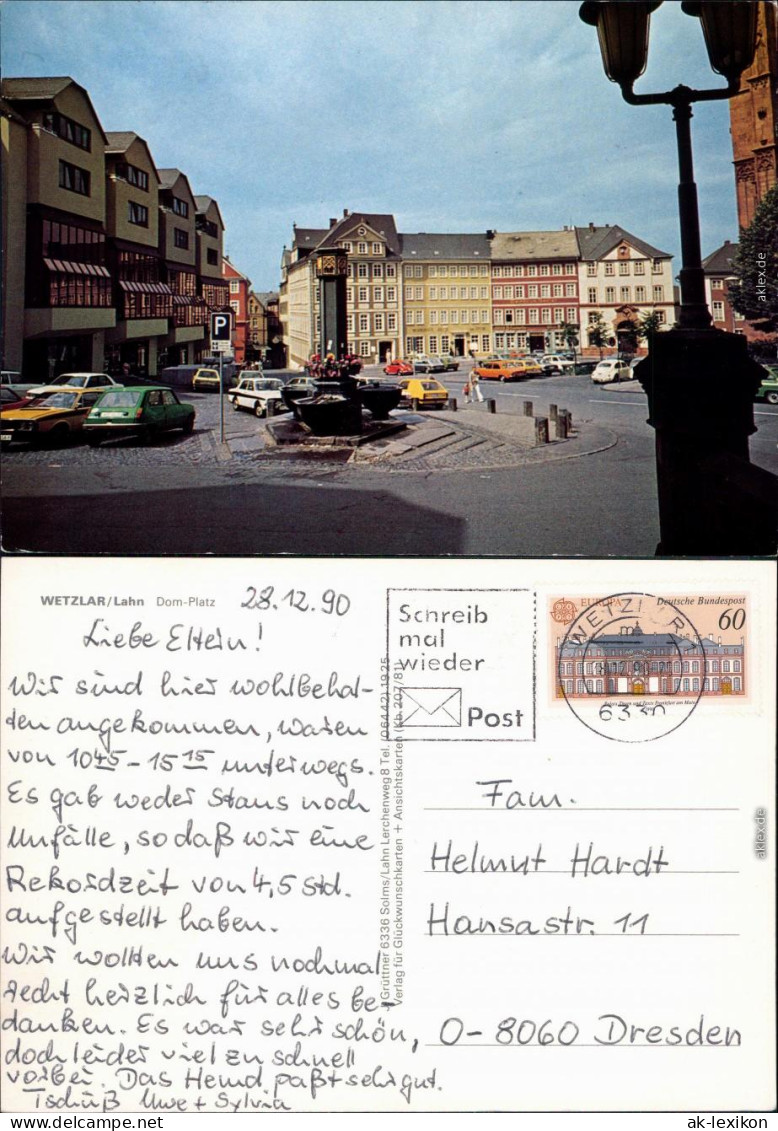 P
aklex.de
WETZLAR/Lahn Dom-Platz 28.12.90
Liebe Eltern!
Wir sind hier wohlbehal-
ten angekommen, waren
von 10 45 - 15 15 unterwegs.
Es gab weder Staus noch
Unfälle, so daß wir eine
Rekordzeit von 4,5 Std.
aufgestellt haben.
Wir wollten uns nochmal
recht herzlich für alles be-
danken. Es war sehr schön,
doch leider viel zu schnell
vorbei. Das Hemd paßt sehr gut.
Tschüß Uwe + Sylvia
Grüttner 6336 Solms/Lahn Lerchenweg 8 Tel. (06442) 1925
Verlag für Glückwunschkarten + Ansichtskarten (Kb 207/81)
Schreib
mal
wieder
Post
WETZLAR 1
6330
EUROPA Deutsche Bundespost
60
Fam.
Helmut Hardt
Hansastr. 11
O-8060 Dresden
aklex.de
www.ak-lexikon.de
ak-lexikon